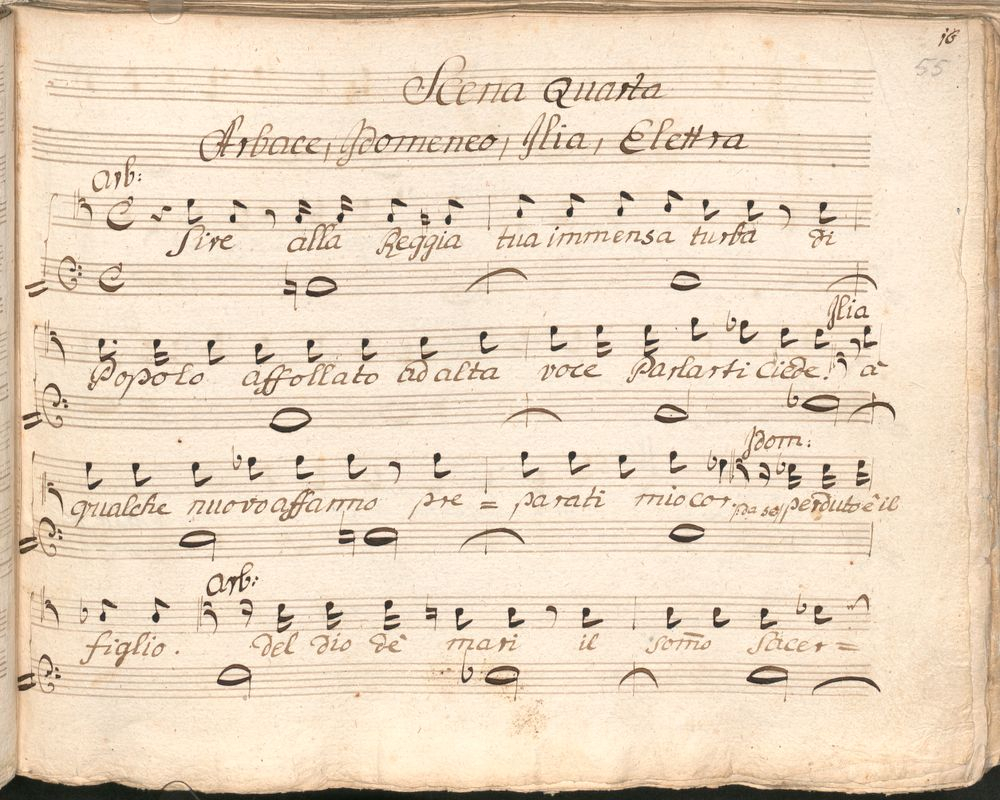 16
55
Scena Quarta
Arbace, Idomeneo, Ilia, Elettra
Arb:
Sire alla Reggia tua immensa turba di
Ilia
Popolo affollato ad alta voce Parlarti ciede. à
Idom:
qualche nuovo affanno pre = parati mio cor. da se perduto è il
Arb:
figlio. del dio de mari il som̄o sacer =